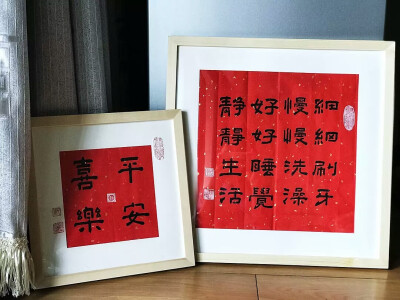 平安
喜樂
細細刷牙
慢慢洗澡
好好睡覺
靜靜生活